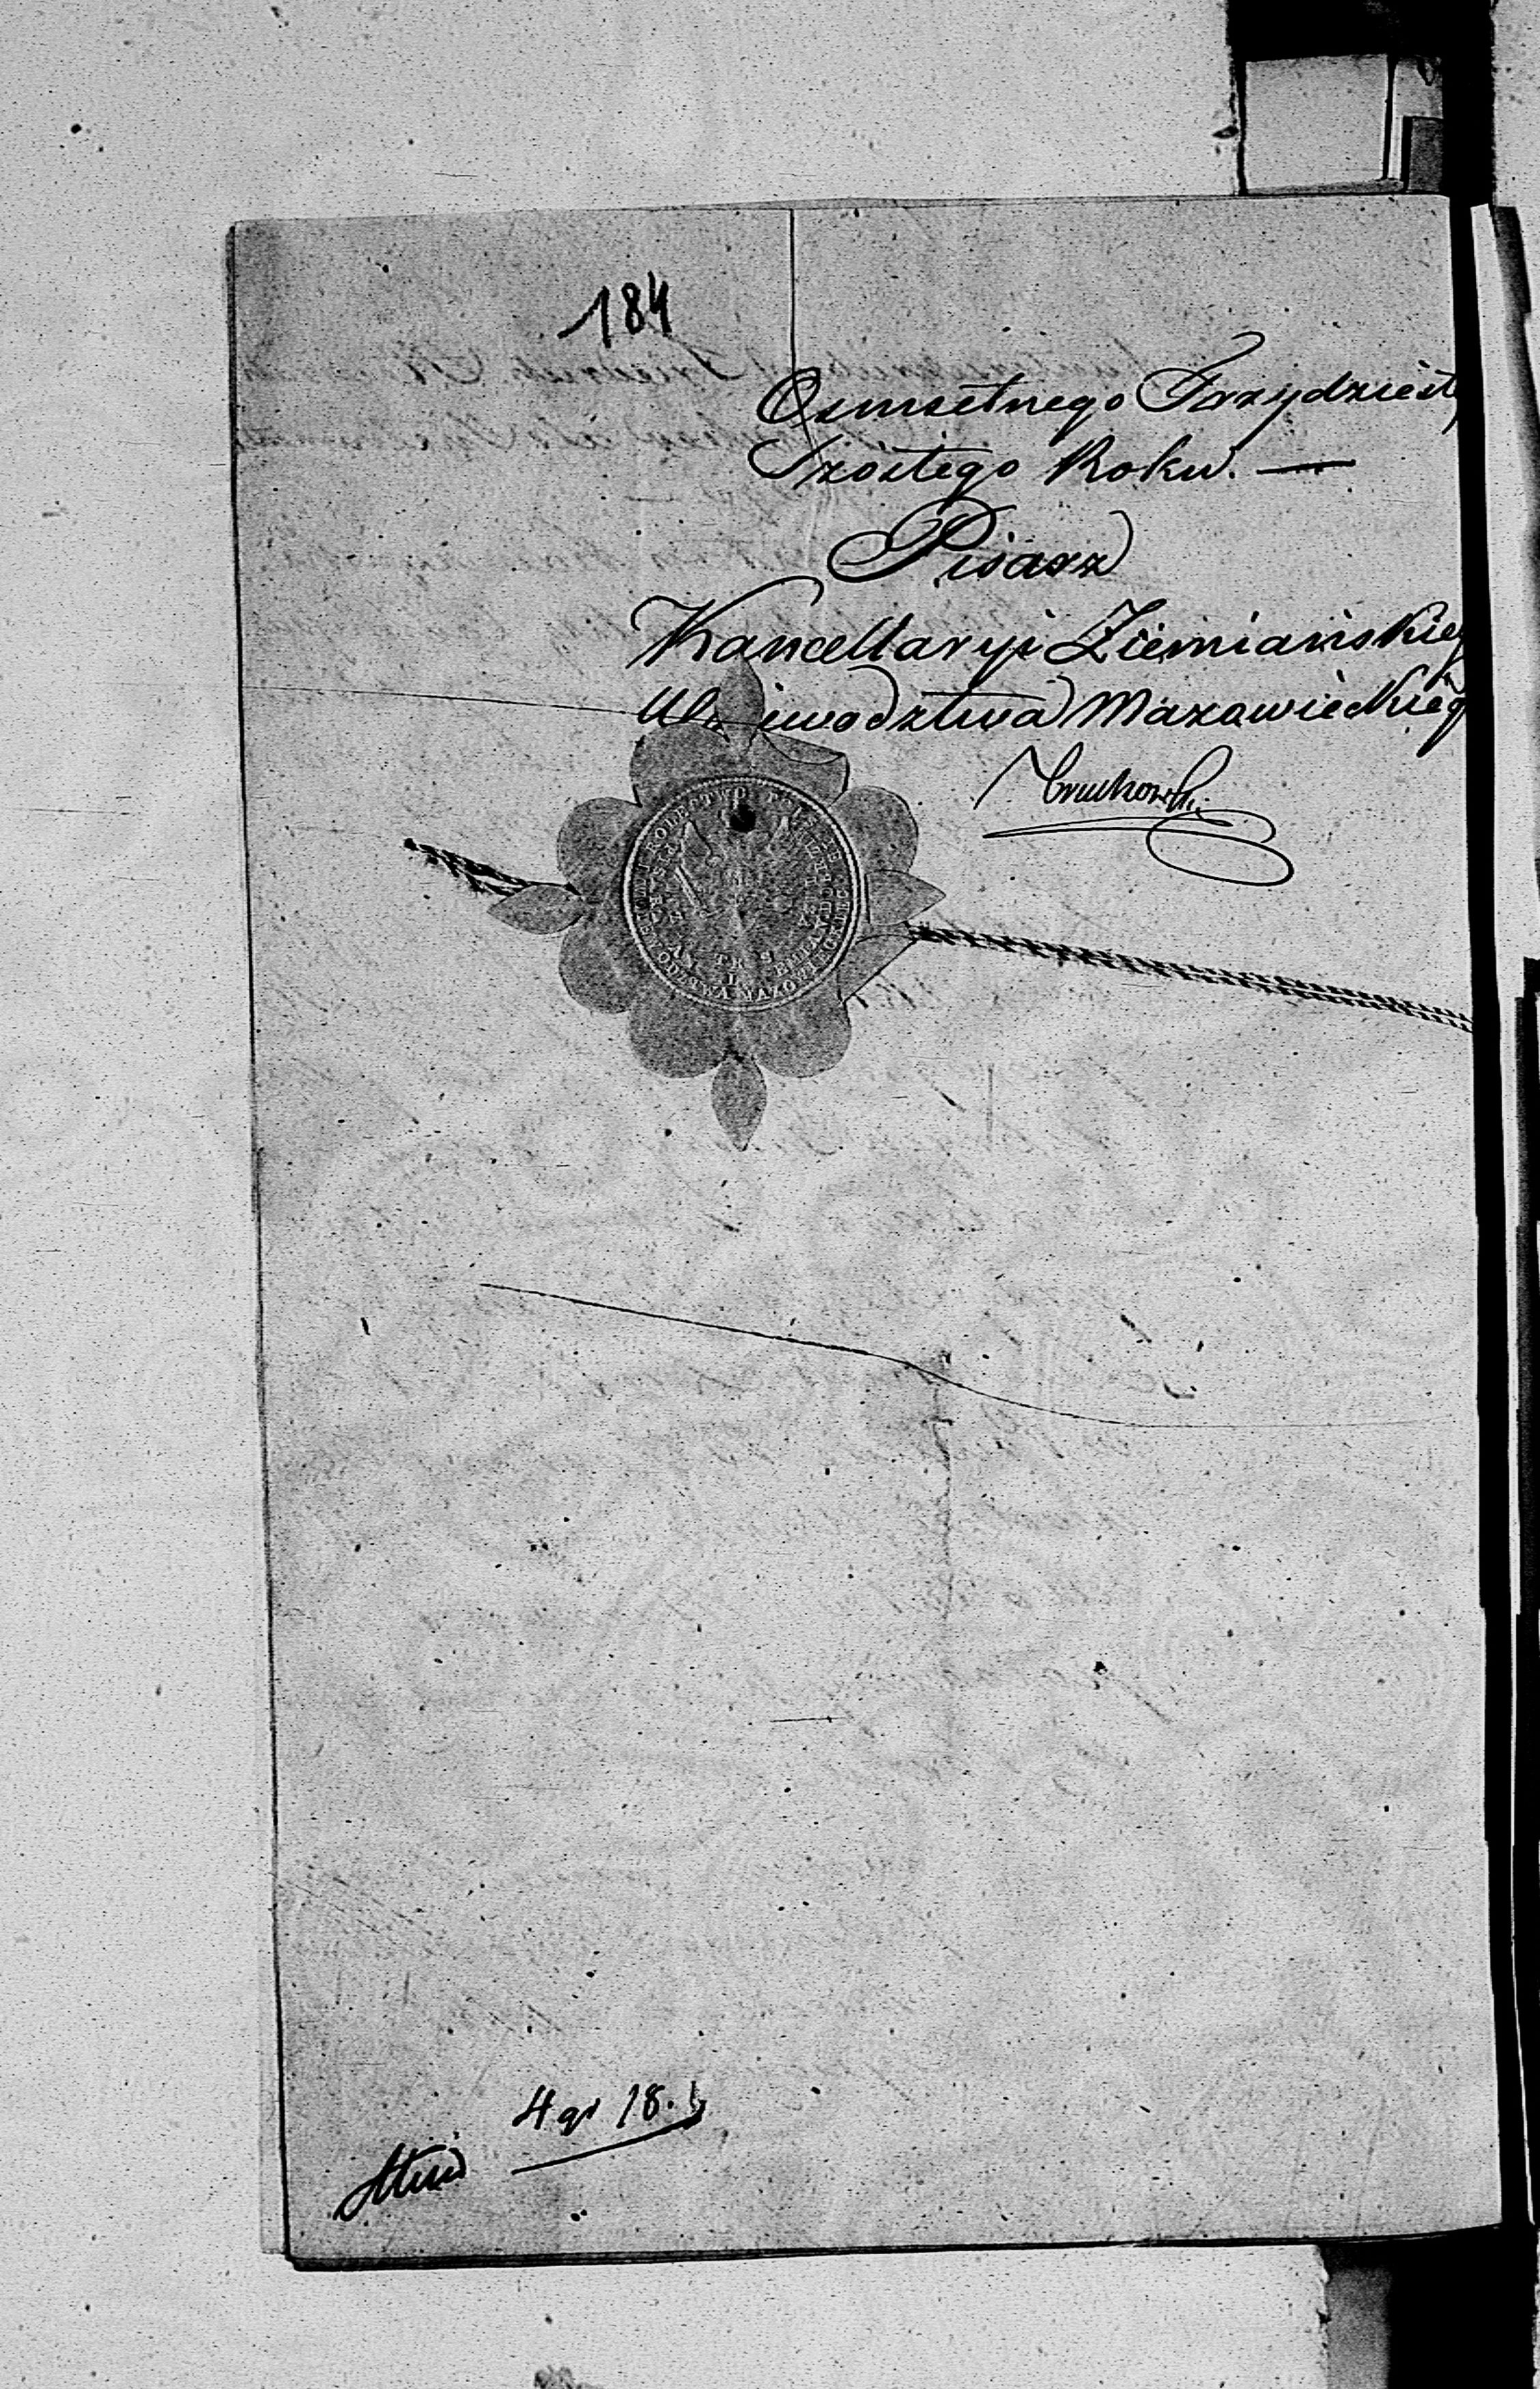 184
Osmsetnego Trzydziest
Szóstego Roku. —
Pisarz
Kancellaryi Ziemiańskiey
Wo iewodztwa Mazowieckieg
KROLESTWO POLSKIE
WOIEWODZTWA MAZOWIECKIEGO
4 gr 18.